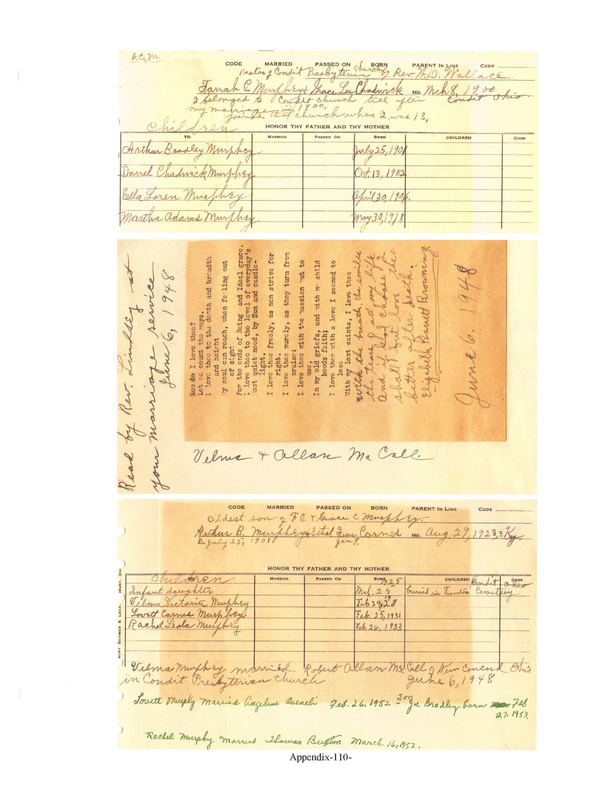 F.C.M.
CODE MARRIED PASSED ON BORN PARENT IN LINE CODE
Pastor of Condit Presbyterian Church of Rev. Wallace
Farrah C Murphey & Grace Lee Chadwick MD. Mch 8, 1900
I belonged to Condit church till after Condit Ohio
my marriage in 1900.
joined that church when I was 13,
Children
HONOR THY FATHER AND THY MOTHER
TO MARRIED PASSED ON BORN CHILDREN CODE
Arthur Bradley Murphey July 25, 1901
Darrel Chadwick Murphey Oct. 13, 1902
Ella Loren Murphey April 30, 1906
Martha Adams Murphey May 30, 1918
Read by Rev. Lindley at
your marriage service
June 6, 1948
How do I love thee?
Let me count the ways.
I love thee to the depth and breadth
and height
My soul can reach, when feeling out
of sight
For the ends of Being and Ideal grace.
I love thee to the level of everyday's
Most quiet need, by Sun and candle-
light.
I love thee freely, as men strive for
right.
I love thee purely, as they turn from
praise;
I love thee with the passion put to
use,
In my old griefs, and with my child
hoods faith;
I love thee with a love I seemed to
lose
With my lost saints, I love thee
with the breath the smiles
the tears of all my life
And if God choose I
shall but love thee
better after death.
Elizabeth Barrett Browning
June 6. 1948
Velma & Allan McCall.
CODE MARRIED PASSED ON BORN PARENT IN LINE CODE
Oldest son of F C & Grace C Murphey.
Arthur B. Murphey & Ethel Fern Carnes MD. Aug. 29, 1923, Ky.
July 25, 1901 Jan 9.
HONOR THY FATHER AND THY MOTHER
Children MARRIED PASSED ON BORN CHILDREN CODE
Infant daughter 1925 Buried in Trenton Cemetery Condit Ohio
Velma Victoria Murphey Feb 24, 28
Lovett Carnes Murphey Feb. 25, 1931
Rachel Leola Murphey Feb. 26, 1933
Velma Murphey married Robert Allan McCall of New Concord Ohio
in Condit Presbyterian Church June 6, 1948
Lovett Murphy Married Angeline Feb. 26. 1952 Son Bradley born Feb
27. 1953.
Rachel Murphy Married Thomas Buxton March. 16, 1952.
Appendix-110-